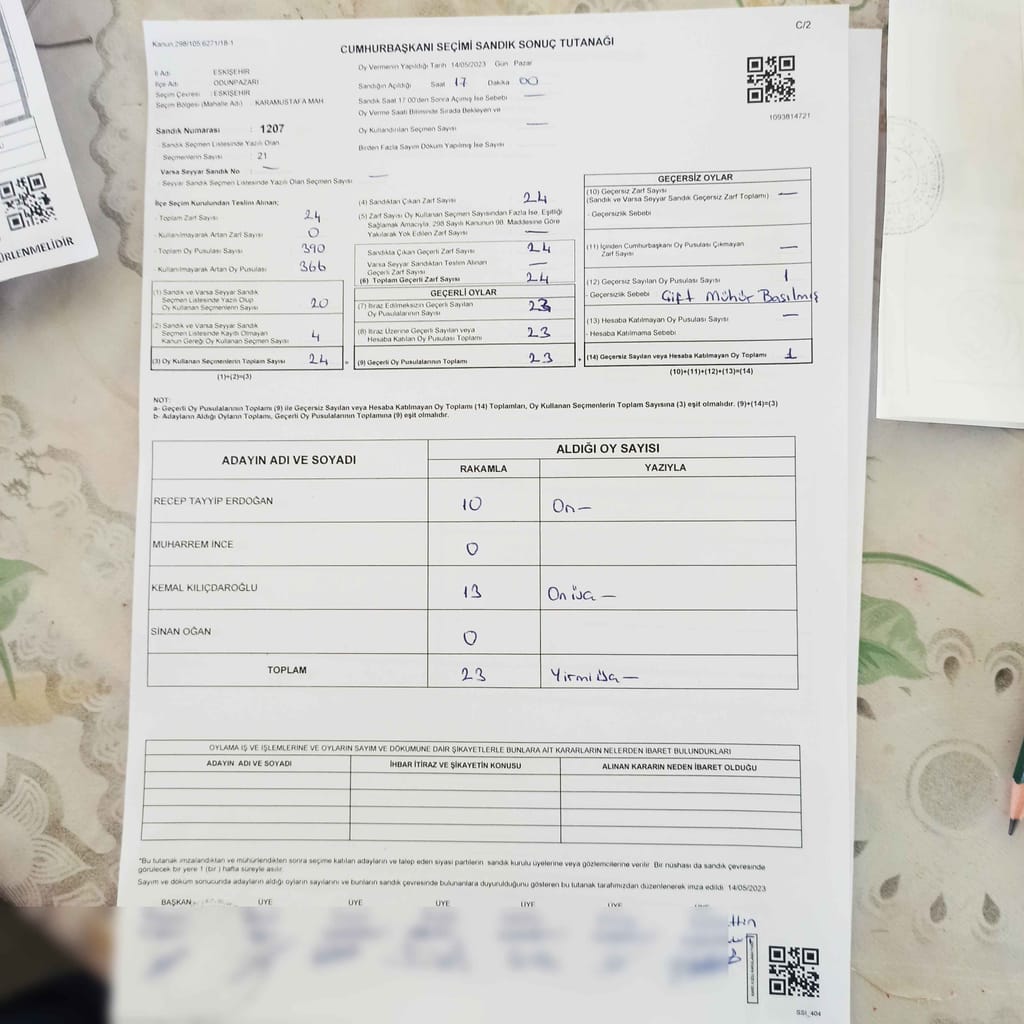 C/2
Kanun 298/105 6271/18-1
CUMHURBAŞKANI SEÇİMİ SANDIK SONUÇ TUTANAĞI
İl Adı : ESKİŞEHİR
İlçe Adı : ODUNPAZARI
Seçim Çevresi : ESKİŞEHİR
Seçim Bölgesi (Mahalle Adı) : KARAMUSTAFA MAH
Sandık Numarası : 1207
- Sandık Seçmen Listesinde Yazılı Olan
Seçmenlerin Sayısı : 21
Varsa Seyyar Sandık No : —
- Seyyar Sandık Seçmen Listesinde Yazılı Olan Seçmen Sayısı : —
Oy Vermenin Yapıldığı Tarih 14/05/2023 Gün Pazar
Sandığın Açıldığı Saat 17 Dakika 00
Sandık Saat 17.00'den Sonra Açılmış İse Sebebi —
Oy Verme Saati Bitiminde Sırada Bekleyen ve
Oy Kullandırılan Seçmen Sayısı —
Birden Fazla Sayım Döküm Yapılmış İse Sayısı —
1093814721
İlçe Seçim Kurulundan Teslim Alınan;
- Toplam Zarf Sayısı : 24
- Kullanılmayarak Artan Zarf Sayısı : 0
- Toplam Oy Pusulası : 390
- Kullanılmayarak Artan Oy Pusulası : 366
(1) Sandık ve Varsa Seyyar Sandık
Seçmen Listesinde Yazılı Olup
Oy Kullanan Seçmenlerin Sayısı : 20
(2) Sandık ve Varsa Seyyar Sandık
Seçmen Listesinde Kayıtlı Olmayan
Kanun Gereği Oy Kullanan Seçmen Sayısı : 4
(3) Oy Kullanan Seçmenlerin Toplam Sayısı : 24
(1)+(2)=(3)
(4) Sandıktan Çıkan Zarf Sayısı : 24
(5) Zarf Sayısı Oy Kullanan Seçmen Sayısından Fazla İse, Eşitliği
Sağlamak Amacıyla, 298 Sayılı Kanunun 98. Maddesine Göre
Yakılarak Yok Edilen Zarf Sayısı : —
Sandıkta Çıkan Geçerli Zarf Sayısı : 24
Varsa Seyyar Sandıktan Teslim Alınan
Geçerli Zarf Sayısı : —
(6) Toplam Geçerli Zarf Sayısı : 24
GEÇERLİ OYLAR
(7) İtiraz Edilmeksizin Geçerli Sayılan
Oy Pusulasının Sayısı : 23
(8) İtiraz Üzerine Geçerli Sayılan veya
Hesaba Katılan Oy Pusulası Sayısı : 23
(9) Geçerli Oy Pusulalarının Toplamı : 23
GEÇERSİZ OYLAR
(10) Geçersiz Zarf Sayısı : —
(Sandık ve Varsa Seyyar Sandık Geçersiz Zarf Toplamı)
- Geçersizlik Sebebi
(11) İçinden Cumhurbaşkanı Oy Pusulası Çıkmayan
Zarf Sayısı : —
(12) Geçersiz Sayılan Oy Pusulası Sayısı : 1
- Geçersizlik Sebebi Çift Mühür Basılmış
(13) Hesaba Katılmayan Oy Pusulası Sayısı : —
- Hesaba Katılmama Sebebi
(14) Geçersiz Sayılan veya Hesaba Katılmayan Oy Toplamı : 1
(10)+(11)+(12)+(13)=(14)
NOT:
a- Geçerli Oy Pusulalarının Toplamı (9) ile Geçersiz Sayılan veya Hesaba Katılmayan Oy Toplamı (14) Toplamları, Oy Kullanan Seçmenlerin Toplam Sayısına (3) eşit olmalıdır. (9)+(14)=(3)
b- Adayların Aldığı Oyların Toplamı, Geçerli Oy Pusulalarının Toplamına (9) eşit olmalıdır.
ADAYIN ADI VE SOYADI
ALDIĞI OY SAYISI
RAKAMLA YAZIYLA
RECEP TAYYİP ERDOĞAN 10 On —
MUHARREM İNCE 0
KEMAL KILIÇDAROĞLU 13 On üç —
SİNAN OĞAN 0
TOPLAM 23 Yirmi üç —
OYLAMA İŞ VE İŞLEMLERİNE VE OYLARIN SAYIM VE DÖKÜMÜNE DAİR ŞİKAYETLERLE BUNLARA AİT KARARLARIN NELERDEN İBARET BULUNDUKLARI
ADAYIN ADI VE SOYADI İHBAR İTİRAZ VE ŞİKAYETİN KONUSU ALINAN KARARIN NEDEN İBARET OLDUĞU
*Bu tutanak imzalandıktan ve mühürlendikten sonra seçime katılan adayların ve talep eden siyasi partilerin sandık kurulu üyelerine veya gözlemcilerine verilir. Bir nüshası da sandık çevresinde
görülecek bir yere 1 (bir ) hafta süreyle asılır.
Sayım ve döküm sonucunda adayların aldığı oyların sayılarını ve bunların sandık çevresinde bulunanlara duyurulduğunu gösteren bu tutanak tarafımızdan düzenlenerek imza edildi 14/05/2023
BAŞKAN ÜYE ÜYE ÜYE ÜYE ÜYE ÜYE
SSİ_404